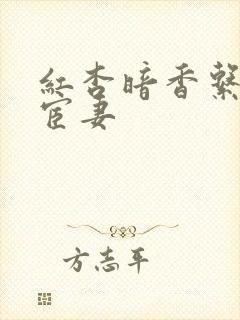 紅杏暗香繫
宦妻
方志平